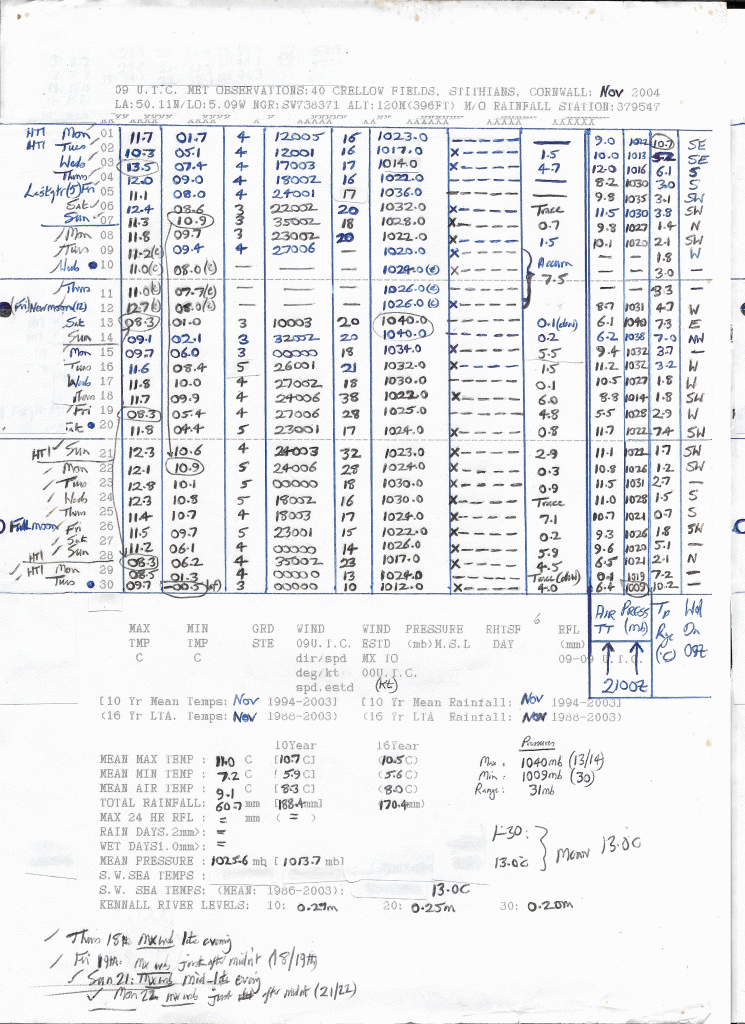 09 U.T.C. MET OBSERVATIONS:40 CRELLOW FIELDS, STITHIANS, CORNWALL: Nov 2004
LA:50.11N/LO:5.09W NGR:SW738371 ALT:120M(396FT) M/O RAINFALL STATION:379547
HTI Mon 01 11.7 01.7 4 12005 16 1023.0 9.0 1022 10.7 SE
HTI Tues 02 10.3 05.1 4 12001 16 1017.0 X 1.5 10.0 1013 5.2 SE
Weds 03 13.5 07.4 4 17003 17 1014.0 X 4.7 12.0 1016 6.1 S
Thurs 04 12.0 09.0 4 18002 16 1022.0 — 8.2 1030 3.0 S
Fri 05 11.1 08.0 4 24001 17 1036.0 — 9.8 1035 3.1 SW
Sat 06 12.4 08.6 3 22002 20 1032.0 X Trace 11.5 1030 3.8 SW
Sun 07 11.3 10.9 3 35002 18 1028.0 X 0.7 9.8 1027 1.4 N
Mon 08 11.8 09.7 3 23002 20 1022.0 X 1.5 10.1 1020 2.1 SW
Tues 09 11.2(e) 09.4 4 27006 — 1020.0 X — — 1.8 W
Weds 10 11.0(e) 08.0(e) — — — 1024.0(e) X Accum 7.5 — — 3.0 —
Thurs 11 11.0(e) 07.7(e) — — — 1026.0(e) — — 3.3 —
(Fri) New moon (12) 12 12.7(e) 08.0(e) — — — 1026.0(e) X 8.7 1031 4.7 W
Sat 13 08.3 01.0 3 10003 20 1040.0 0.1(dew) 6.1 1040 7.3 E
Sun 14 09.1 02.1 3 32002 20 1040.0 X 0.2 6.2 1038 7.0 NW
Mon 15 09.7 06.0 3 00000 18 1034.0 X 5.5 9.4 1032 3.7 —
Tues 16 11.6 08.4 5 26001 21 1032.0 X 1.5 11.2 1032 3.2 W
Weds 17 11.8 10.0 4 27002 18 1030.0 X 0.1 10.5 1027 1.8 W
Thurs 18 11.7 09.9 4 24006 38 1022.0 X 6.0 8.8 1014 1.8 SW
Fri 19 08.3 05.4 4 27006 28 1025.0 4.8 5.5 1028 2.9 W
Sat 20 11.8 04.4 5 23001 17 1024.0 X 0.8 11.7 1022 7.4 SW
HTI Sun 21 12.3 10.6 4 24003 32 1023.0 X 2.9 11.1 1022 1.7 SW
Mon 22 12.1 10.9 5 24006 28 1024.0 X 0.3 10.8 1026 1.2 SW
Tues 23 12.8 10.1 5 00000 18 1030.0 X 0.9 11.5 1031 2.7 —
Weds 24 12.3 10.8 5 18002 16 1030.0 X Trace 11.0 1028 1.5 S
Thurs 25 11.4 10.7 4 18003 17 1024.0 X 7.1 10.7 1021 0.7 S
Full moon Fri 26 11.5 09.7 5 23001 15 1022.0 X 0.2 9.3 1026 1.8 SW
Sat 27 11.2 06.1 4 00000 14 1026.0 X 5.9 9.6 1020 5.1 —
HTI Sun 28 08.3 06.2 4 35002 23 1017.0 X 4.5 6.5 1021 2.1 N
HTI Mon 29 08.5 01.3 4 00000 13 1024.0 Trace(dew) 0.1 1019 7.2 —
Tues 30 09.7 -00.5(af) 3 00000 10 1012.0 X 4.0 6.4 1009 10.2 —
MAX MIN GRD WIND WIND PRESSURE RHTSF 6 RFL AIR PRESS Tp Wd
TMP TMP STE 09U.T.C. ESTD (mb)M.S.L DAY (mm) TT (mb) Rge Dn
C C dir/spd MX TO 09-09 U.T.C. (°C) 09Z
deg/kt 00U.T.C. 2100Z
spd.estd (kt)
[10 Yr Mean Temps: Nov 1994-2003] [10 Yr Mean Rainfall: Nov 1994-2003]
(16 Yr LTA. Temps: Nov 1988-2003) (16 Yr LTA Rainfall: Nov 1988-2003)
10Year 16Year Pressures
MEAN MAX TEMP : 11.0 C [10.7 C] (10.5 C) Max : 1040mb (13/14)
MEAN MIN TEMP : 7.2 C [5.9 C] (5.6 C) Min : 1009mb (30)
MEAN AIR TEMP : 9.1 C [8.3 C] (8.0 C) Range : 31mb
TOTAL RAINFALL: 60.7 mm [188.4mm] 170.4mm)
MAX 24 HR RFL : = mm ( = )
RAIN DAYS.2mm): = 1-30:
WET DAYS1.0mm): = 13.0°C Mean 13.0C
MEAN PRESSURE : 1025.6 mb [1013.7 mb]
S.W.SEA TEMPS :
S.W. SEA TEMPS: (MEAN: 1986-2003): 13.0C
KENNALL RIVER LEVELS: 10: 0.29m 20: 0.25m 30: 0.20m
Thurs 18th: mx wnd late evening
Fri 19th: mx wnd just after midn't (18/19th)
Sun 21: Mx wnd mid-late evening
Mon 22 mx wnd just after midnt (21/22)